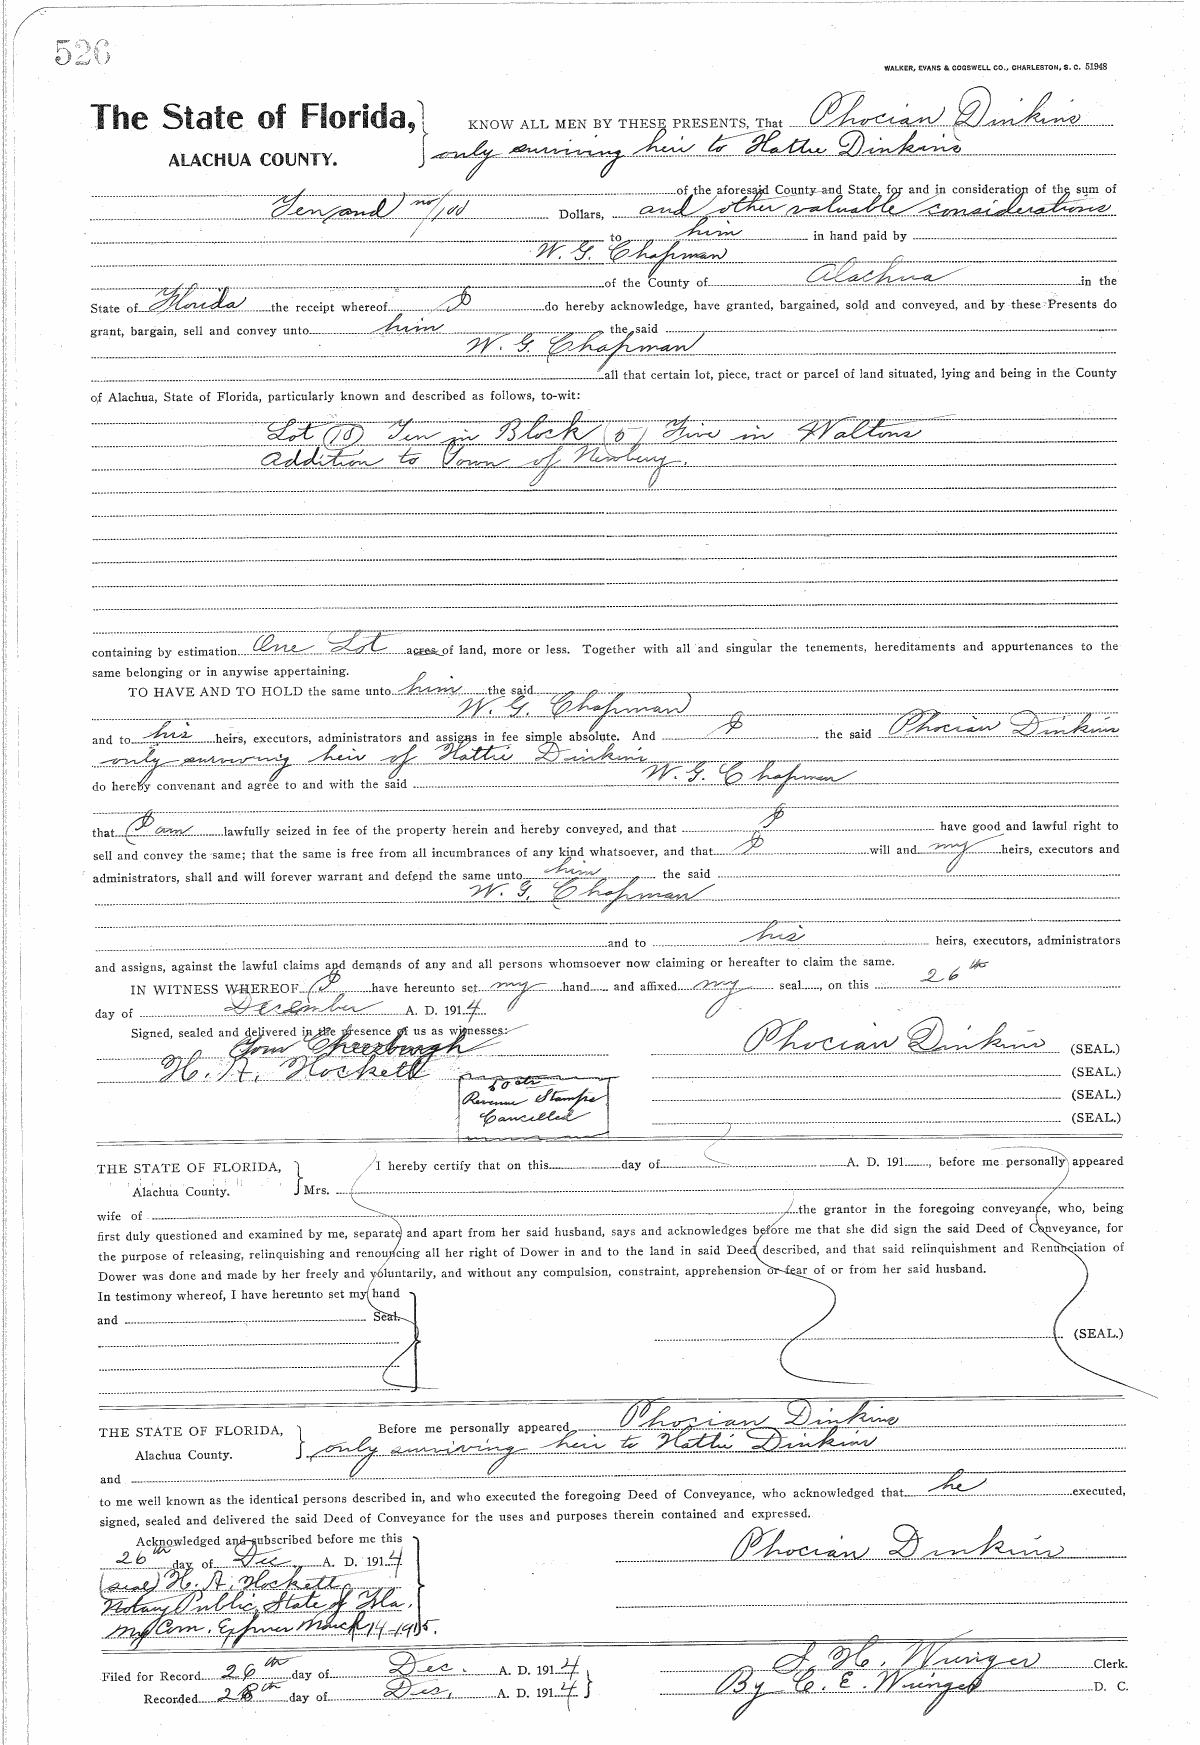 526
WALKER, EVANS & COGSWELL CO., CHARLESTON, S. C. 51948
The State of Florida,
ALACHUA COUNTY.
KNOW ALL MEN BY THESE PRESENTS, That Phocian Dinkins
only surviving heir to Hattie Dinkins
of the aforesaid County and State, for and in consideration of the sum of
Ten and no/100 Dollars, and other valuable considerations
to him in hand paid by
W. G. Chapman
of the County of Alachua in the
State of Florida the receipt whereof I do hereby acknowledge, have granted, bargained, sold and conveyed, and by these Presents do
grant, bargain, sell and convey unto him the said
W. G. Chapman
all that certain lot, piece, tract or parcel of land situated, lying and being in the County
of Alachua, State of Florida, particularly known and described as follows, to-wit:
Lot (10) Ten in Block (5) Five in Waltons
Addition to Town of Newberry.
containing by estimation One Lot acres of land, more or less. Together with all and singular the tenements, hereditaments and appurtenances to the
same belonging or in anywise appertaining.
TO HAVE AND TO HOLD the same unto him the said
W. G. Chapman
and to his heirs, executors, administrators and assigns in fee simple absolute. And I the said Phocian Dinkins
only surviving heir of Hattie Dinkins
do hereby convenant and agree to and with the said W. G. Chapman
that I am lawfully seized in fee of the property herein and hereby conveyed, and that I have good and lawful right to
sell and convey the same; that the same is free from all incumbrances of any kind whatsoever, and that I will and my heirs, executors and
administrators, shall and will forever warrant and defend the same unto him the said
W. G. Chapman
and to his heirs, executors, administrators
and assigns, against the lawful claims and demands of any and all persons whomsoever now claiming or hereafter to claim the same.
IN WITNESS WHEREOF I have hereunto set my hand and affixed my seal, on this 26th
day of December A. D. 1914.
Signed, sealed and delivered in the presence of us as witnesses:
Tom
H. A. Hockett
Phocian Dinkins (SEAL.)
(SEAL.)
(SEAL.)
(SEAL.)
50 cts
Revenue Stamps
Cancelled
THE STATE OF FLORIDA,
Alachua County.
I hereby certify that on this day of A. D. 191, before me personally appeared
Mrs.
wife of the grantor in the foregoing conveyance, who, being
first duly questioned and examined by me, separate and apart from her said husband, says and acknowledges before me that she did sign the said Deed of Conveyance, for
the purpose of releasing, relinquishing and renouncing all her right of Dower in and to the land in said Deed described, and that said relinquishment and Renunciation of
Dower was done and made by her freely and voluntarily, and without any compulsion, constraint, apprehension or fear of or from her said husband.
In testimony whereof, I have hereunto set my hand
and Seal.
(SEAL.)
THE STATE OF FLORIDA,
Alachua County.
Before me personally appeared Phocian Dinkins
only surviving heir to Hattie Dinkins
and
to me well known as the identical persons described in, and who executed the foregoing Deed of Conveyance, who acknowledged that he executed,
signed, sealed and delivered the said Deed of Conveyance for the uses and purposes therein contained and expressed.
Acknowledged and subscribed before me this
26th day of Dec A. D. 1914
(seal) H. A. Hockett
Notary Public, State of Fla.
My Com. Expires March 14-1915.
Phocian Dinkins
Filed for Record 26th day of Dec. A. D. 1914
Recorded 28th day of Dec. A. D. 1914
S. H. Wienges Clerk.
By C. E. Wienges D. C.